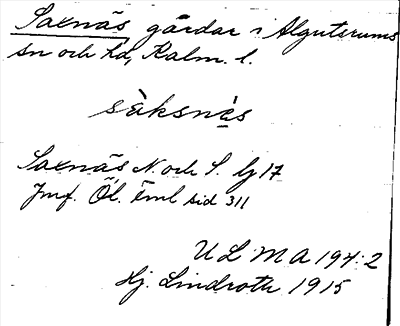 Saxnäs gårdar i Algutsrums
sn och hd, Kalm. l.
sàksnè̱s
Saxnäs N. och S. bj 17
Jmf. Öl. Eml sid 311
U L M A 194:2
Hj. Lindroth 1915